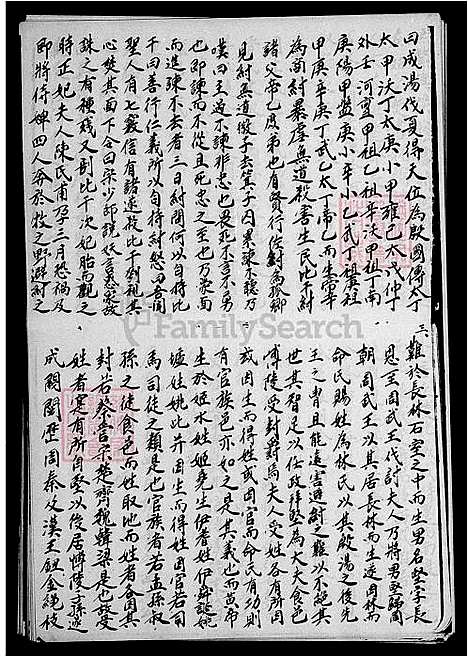 曰成湯伐夏得天位為殷國傳太丁
太甲沃丁太庚小甲雍己太戊仲丁
外壬河亶甲祖乙祖辛沃甲祖丁南
庚陽甲盤庚小辛小乙武丁祖庚祖
甲庚辛庚丁武乙太丁帝乙而生帝辛
為商紂暴虐無道殺害生民比干紂
諸父帝乙庶弟也有賢行佐紂為孤卿
見紂無道微子去之箕子囚累諫不聽乃
嘆曰主過不諫非忠也畏死不言不勇
也即諫而不從且死忠之至也乃蒙面
而進諫不去者三日紂問何以自持比
干曰善行仁義所以自持紂怒曰吾聞
聖人有七竅信有諸遂殺比干剖視其
心焚其面下令曰宗少師說妖言惑眾故
誅之有種賤又剖比干次妃胎而觀之
時正妃夫人陳氏甫孕三月恐禍及
即將侍婢四人奔於牧之野避紂之
三
難於長林石室之中而生男名堅字長
恩至周武王伐討夫人乃將男堅歸周
朝周武王以其居長林而生遂因林而
命氏賜姓為林氏以其殷湯之後先
王之冑且能遠害避紂之難以不絕其
世其智足以任政拜堅為大夫食邑
博陵受封爵焉夫人受姓各有所因
或因生而得姓或因官而命氏有功則
有官族邑亦如之是其義也而黃帝
生於姬水姓姬堯生伊耆姓伊舜誕姚
墟姓姚比并因生而得姓因官若司
馬司徒之類是也官族者若孟孫叔
孫之徒食邑而姓取地而姓者各因其
封若蔡晉宋楚齊魏韓梁是也故受
姓者寔有所自堅以後居博陵子孫遂
成關閩歷周秦及漢王鈕金繩枝
FamilySearch